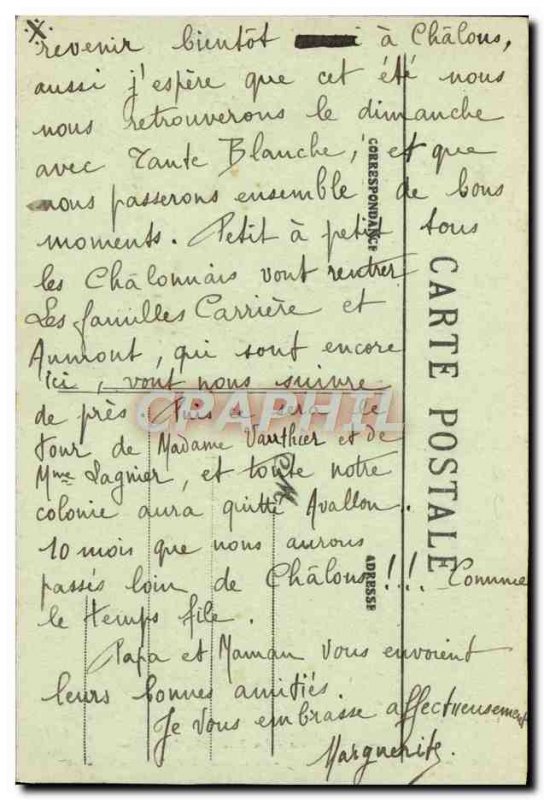 revenir bientôt à Châlons,
aussi j'espère que cet été nous
nous retrouverons le dimanche
avec Tante Blanche, et que
nous passerons ensemble de bons
moments. Petit à petit tous
les Châlonnais vont rentrer
Les familles Carrière et
Aumont, qui sont encore
ici, vont nous suivre
de près. Puis ce sera le
tour de Madame Vauthier et de
Mme Lagnier, et toute notre
colonie aura quitté Avallon.
10 mois que nous aurons
passés loin de Châlons!!! Comme
le temps file.
Papa et Maman vous envoient
leurs bonnes amitiés.
Je vous embrasse affectueusement
Marguerite.
CORRESPONDANCE
CARTE POSTALE
ADRESSE
CPAPHIL